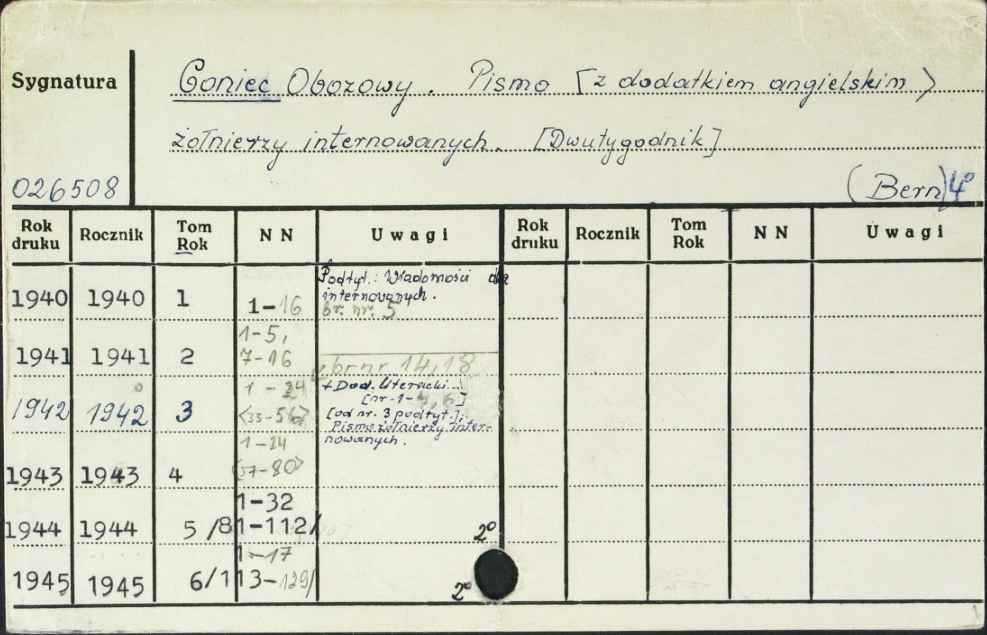 Sygnatura
Goniec Obozowy. Pismo [z dodatkiem angielskim>
żołnierzy internowanych. [Dwutygodnik]
026508 (Bern) 4°
Rok druku Rocznik Tom Rok NN Uwagi Rok druku Rocznik Tom Rok NN Uwagi
Podtyt.: Wiadomości dla
internowanych.
1940 1940 1 1-16 br. nr. 5
1-5,
1941 1941 2 7-16
br nr 14,18
1 - 24 + Dod. literacki
[nr. 1-4, 6]
1942 1942 3 <33-56> [od nr. 3 podtyt.];
Pismo żołnierzy inter-
nowanych.
1-24
1943 1943 4 <57-80>
1-32
1944 1944 5 /81-112/ 2°
1-17
1945 1945 6/113-129/ 2°